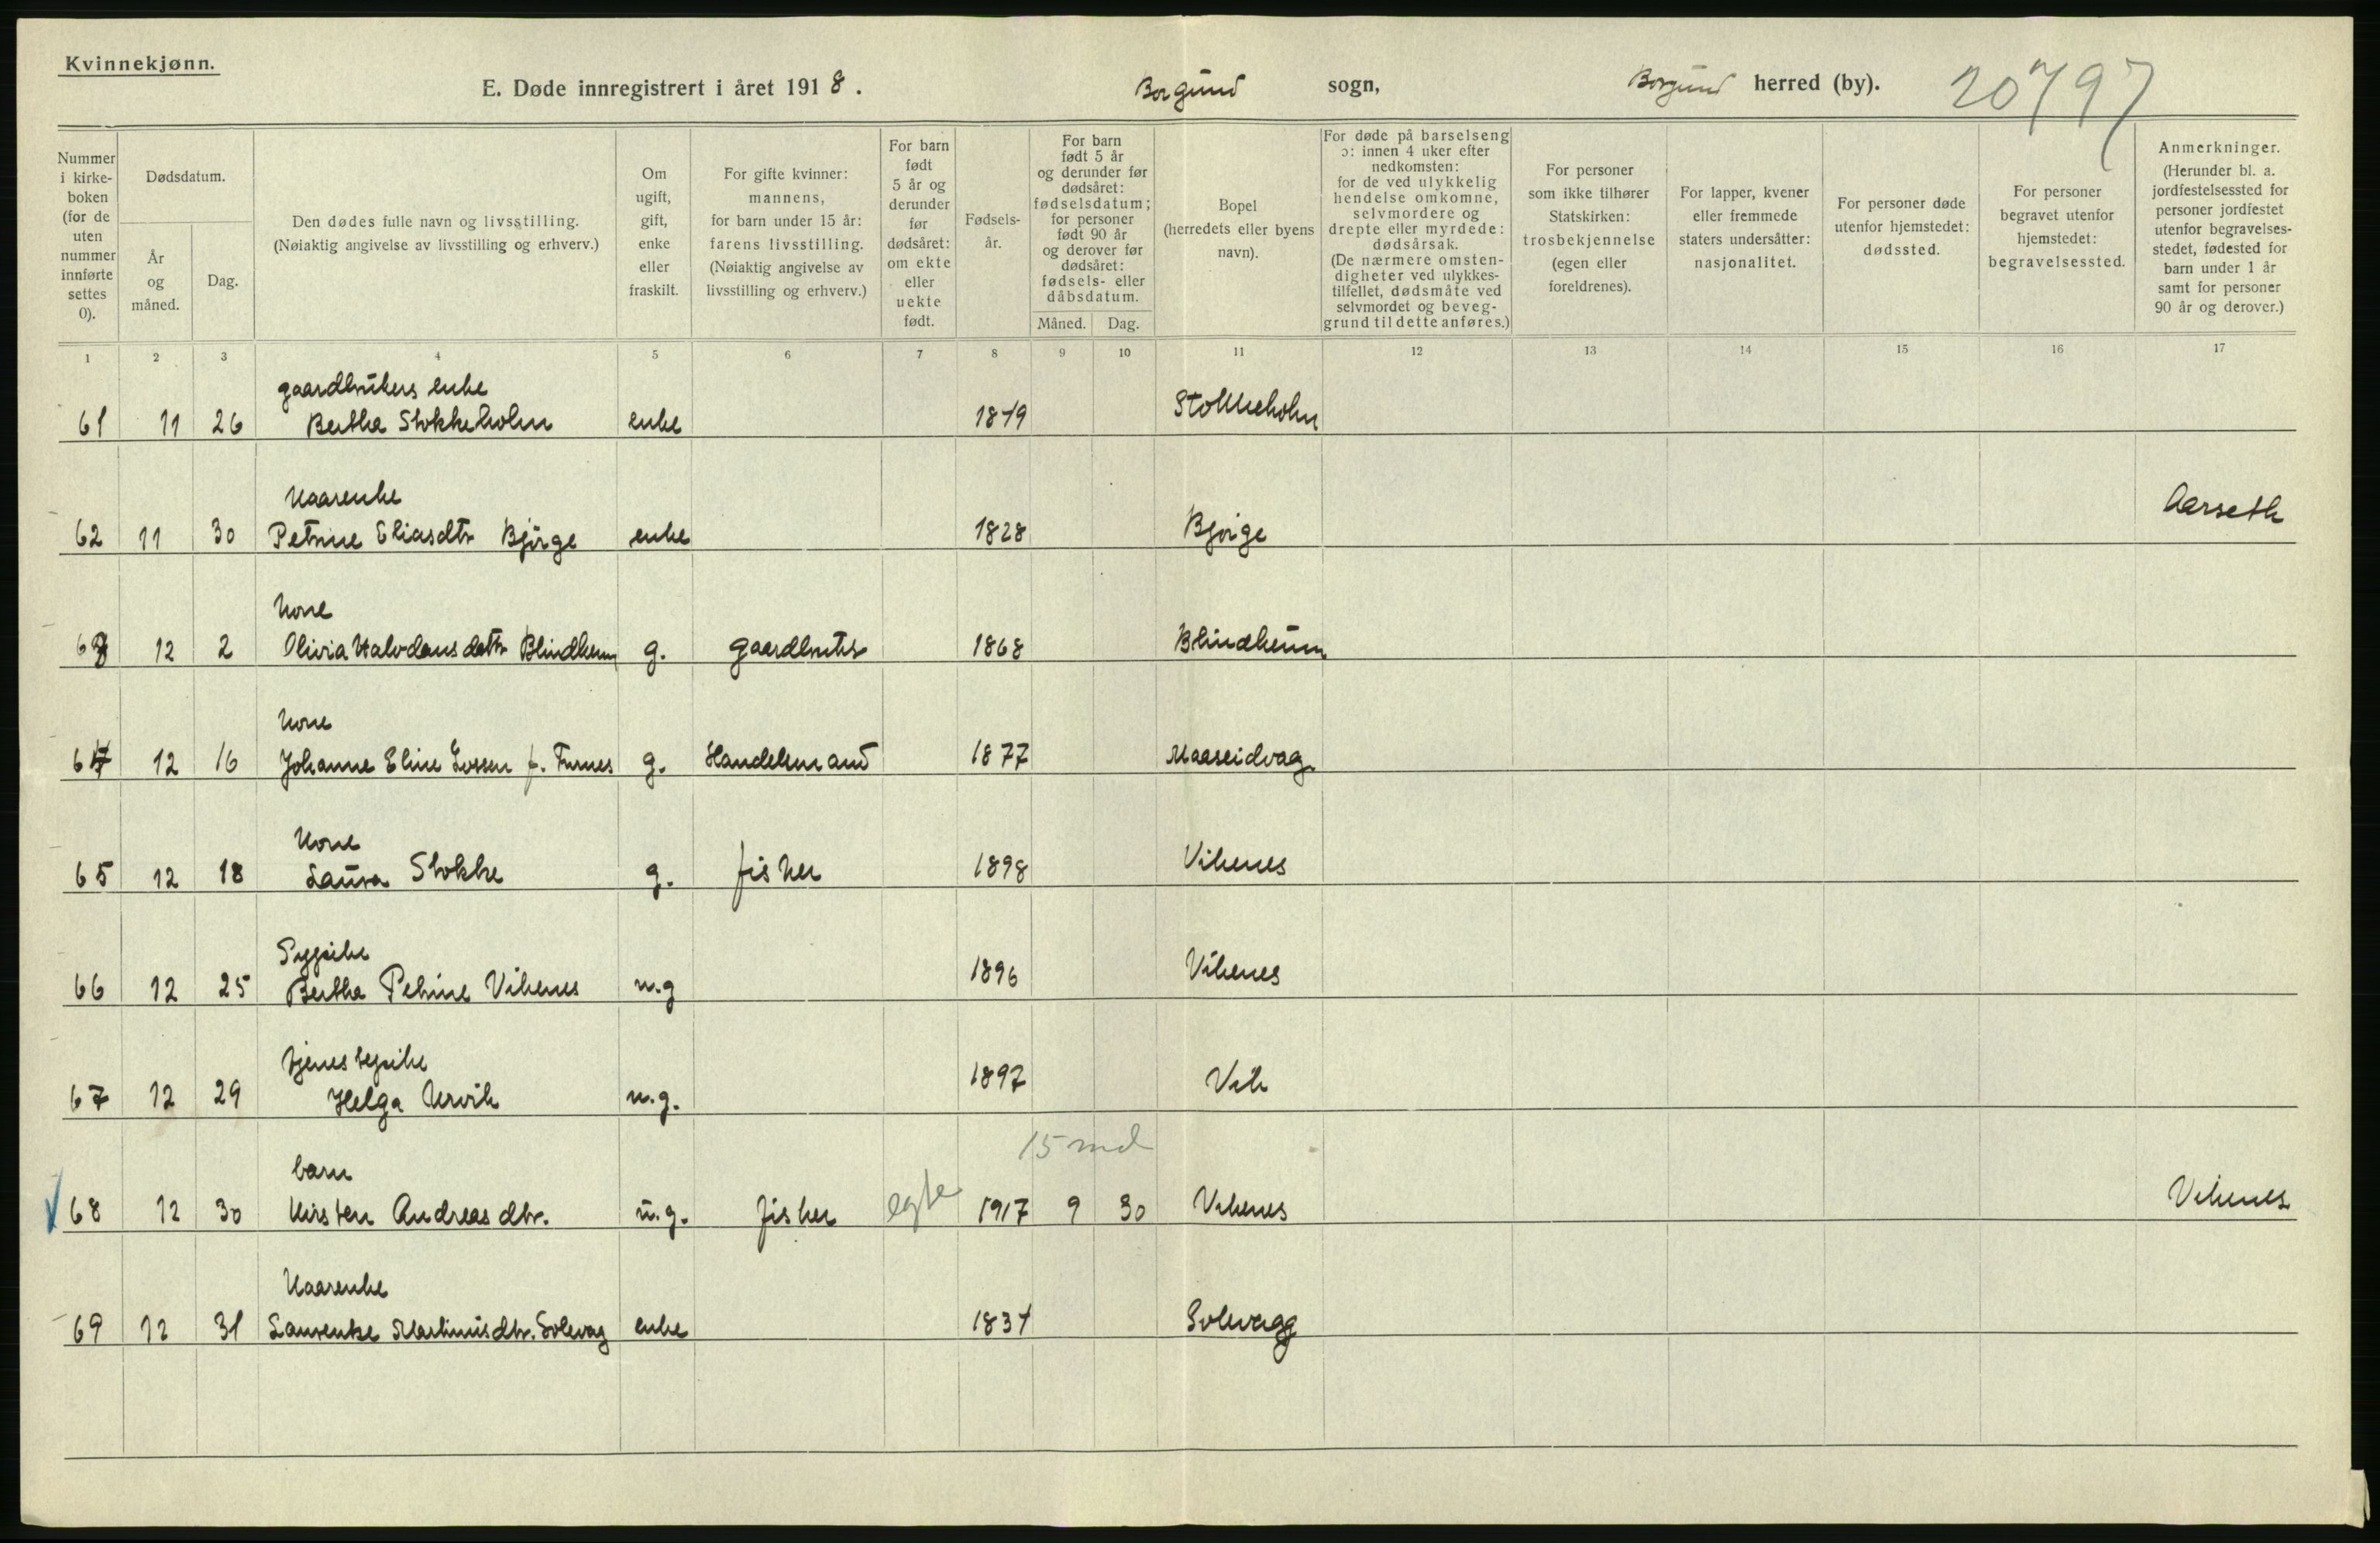 Kvinnekjønn.
E. Døde innregistrert i året 1918. Borgund sogn, Borgund herred (by). 20797
Nummer i kirke-boken (for de uten nummer innførte settes 0).
Dødsdatum.
År og måned.
Dag.
Den dødes fulle navn og livsstilling.
(Nøiaktig angivelse av livsstilling og erhverv.)
Om ugift, gift, enke eller fraskilt.
For gifte kvinner: mannens, for barn under 15 år: farens livsstilling. (Nøiaktig angivelse av livsstilling og erhverv.)
For barn født 5 år og derunder før dødsåret: om ekte eller uekte født.
Fødsels-år.
For barn født 5 år og derunder før dødsåret: fødselsdatum; for personer født 90 år og derover før dødsåret: fødsels- eller dåbsdatum.
Måned. Dag.
Bopel (herredets eller byens navn).
For døde på barselseng ɔ: innen 4 uker efter nedkomsten: for de ved ulykkelig hendelse omkomne, selvmordere og drepte eller myrdede: dødsårsak. (De nærmere omsten-digheter ved ulykkes-tilfellet, dødsmåte ved selvmordet og beveg-grund til dette anføres.)
For personer som ikke tilhører Statskirken: trosbekjennelse (egen eller foreldrenes).
For lapper, kvener eller fremmede staters undersåtter: nasjonalitet.
For personer døde utenfor hjemstedet: dødssted.
For personer begravet utenfor hjemstedet: begravelsessted.
Anmerkninger. (Herunder bl. a. jordfestelsessted for personer jordfestet utenfor begravelses-stedet, fødested for barn under 1 år samt for personer 90 år og derover.)
1 2 3 4 5 6 7 8 9 10 11 12 13 14 15 16 17
gaardbrukers enke
61 11 26 Berthe Stokkeholm enke 1849 Stokkeholm
Kaarenke
62 11 30 Petrine Eliasdtr Bjørge enke 1828 Bjørge Aarseth
kone
63 12 2 Olivia Halvdansdatr Blindheim g. gaardbruker 1868 Blindheim
kone
64 12 16 Johanne Eline f. Furnes g. Handelsmand 1877 Maaseidvag
kone
65 12 18 Laura Stokke g. fisker 1898 Vikenes
Pygepike
66 12 25 Berthe Petrine Vikenes u.g 1896 Vikenes
tjenestepike
67 12 29 Helga Urvik u.g. 1897 Vik
15 md
barn
68 12 30 Kirsten Andreasdtr. u.g. fisker egte 1917 9 30 Vikenes Vikenes
Kaarenke
69 12 31 Laurentse Martinusdtr. Solevag enke 1834 Solevagg